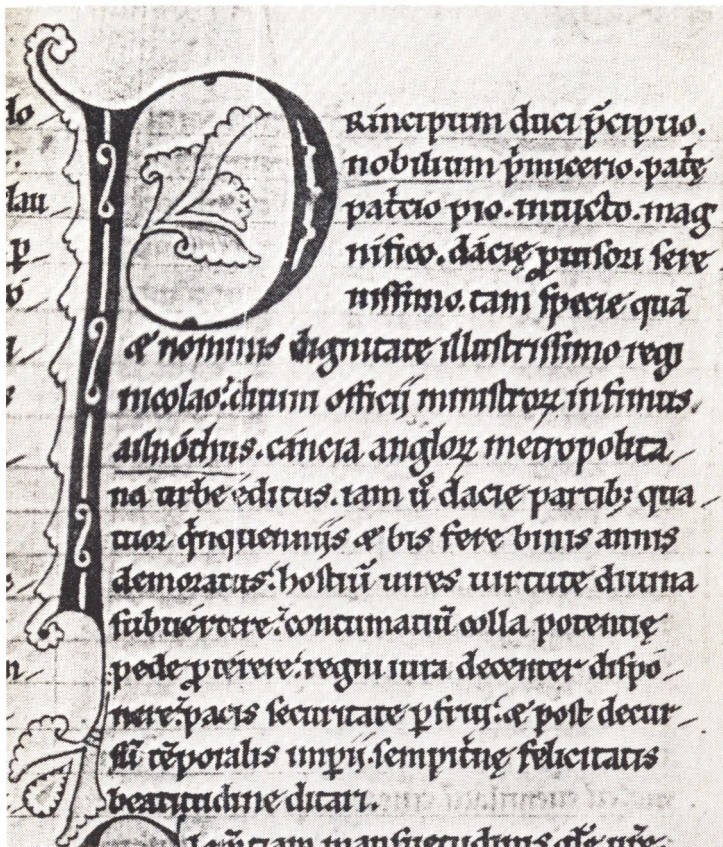 PRincipum duci p̄cipuo.
nobilium p̄micerio. pat̄e
pat̄cio pio. inuicto. mag
nifico. dacię ꝓuisori sere
nissimo. tam specie quā
& nominis dignitate illustrissimo regi
nicolao: diuini officij ministroꝝ infimus.
ailnothus. cancia angloꝝ metropolita
na urbe editus. iam u̅ dacie partib; qua
tuor q̇nquennijs & bis fere binis annis
demoratus: hostiū uires uirtute diuina
subuertere: contumaciū colla potentię
pede ꝓterere: regni iura decenter dispo
nere: pacis securitate ꝑfrui: & post decur
sū tēporalis imꝑij. sempit̄nę felicitatis
beatitudine ditari.
mansuetudinis